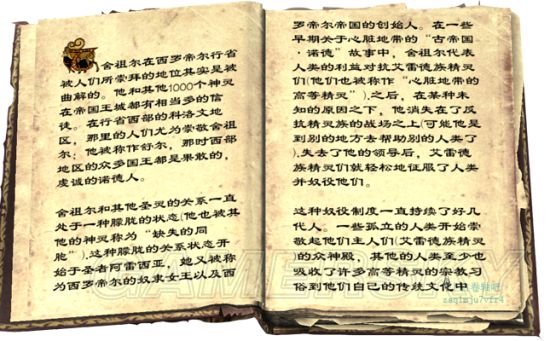 舍祖尔在西罗帝尔行省
被人们所崇拜的地位其实是被
曲解的。他和其他1000个神灵
在帝国王城都有相当多的信
徒。在行省西部的科洛文地
区，那里的人们尤为崇敬舍祖
尔；他被称作舒尔，那时西部
地区的众多国王都是果敢的，
虔诚的诺德人。
舍祖尔和其他圣灵的关系一直
处于一种朦胧的状态(他也被其
他的神灵称为“缺失的同
胞”).这种朦胧的关系状态开
始于圣者阿雷西亚，她又被称
为西罗帝尔的奴隶女王以及西
罗帝尔帝国的创始人。在一些
早期关于心脏地带的“古帝国
·诺德”故事中，舍祖尔代表
人类的利益对抗艾雷德族精灵
们(他们也被称作“心脏地带的
高等精灵”),之后，在某种未
知的原因之下，他消失在了反
抗精灵族的战场之上(可能他是
到别的地方去帮助别的人类了
),失去了他的领导后，艾雷德
族精灵们就轻松地征服了人类
并奴役他们。
这种奴役制度一直持续了好几
代人。一些孤立的人类开始崇
敬起他们主人们(艾雷德族精灵
)的众神殿，其他的人类至少也
吸收了许多高等精灵的宗教习
俗到他们自己的传统文化中
卷轴吧
zaqtmju7vfr4